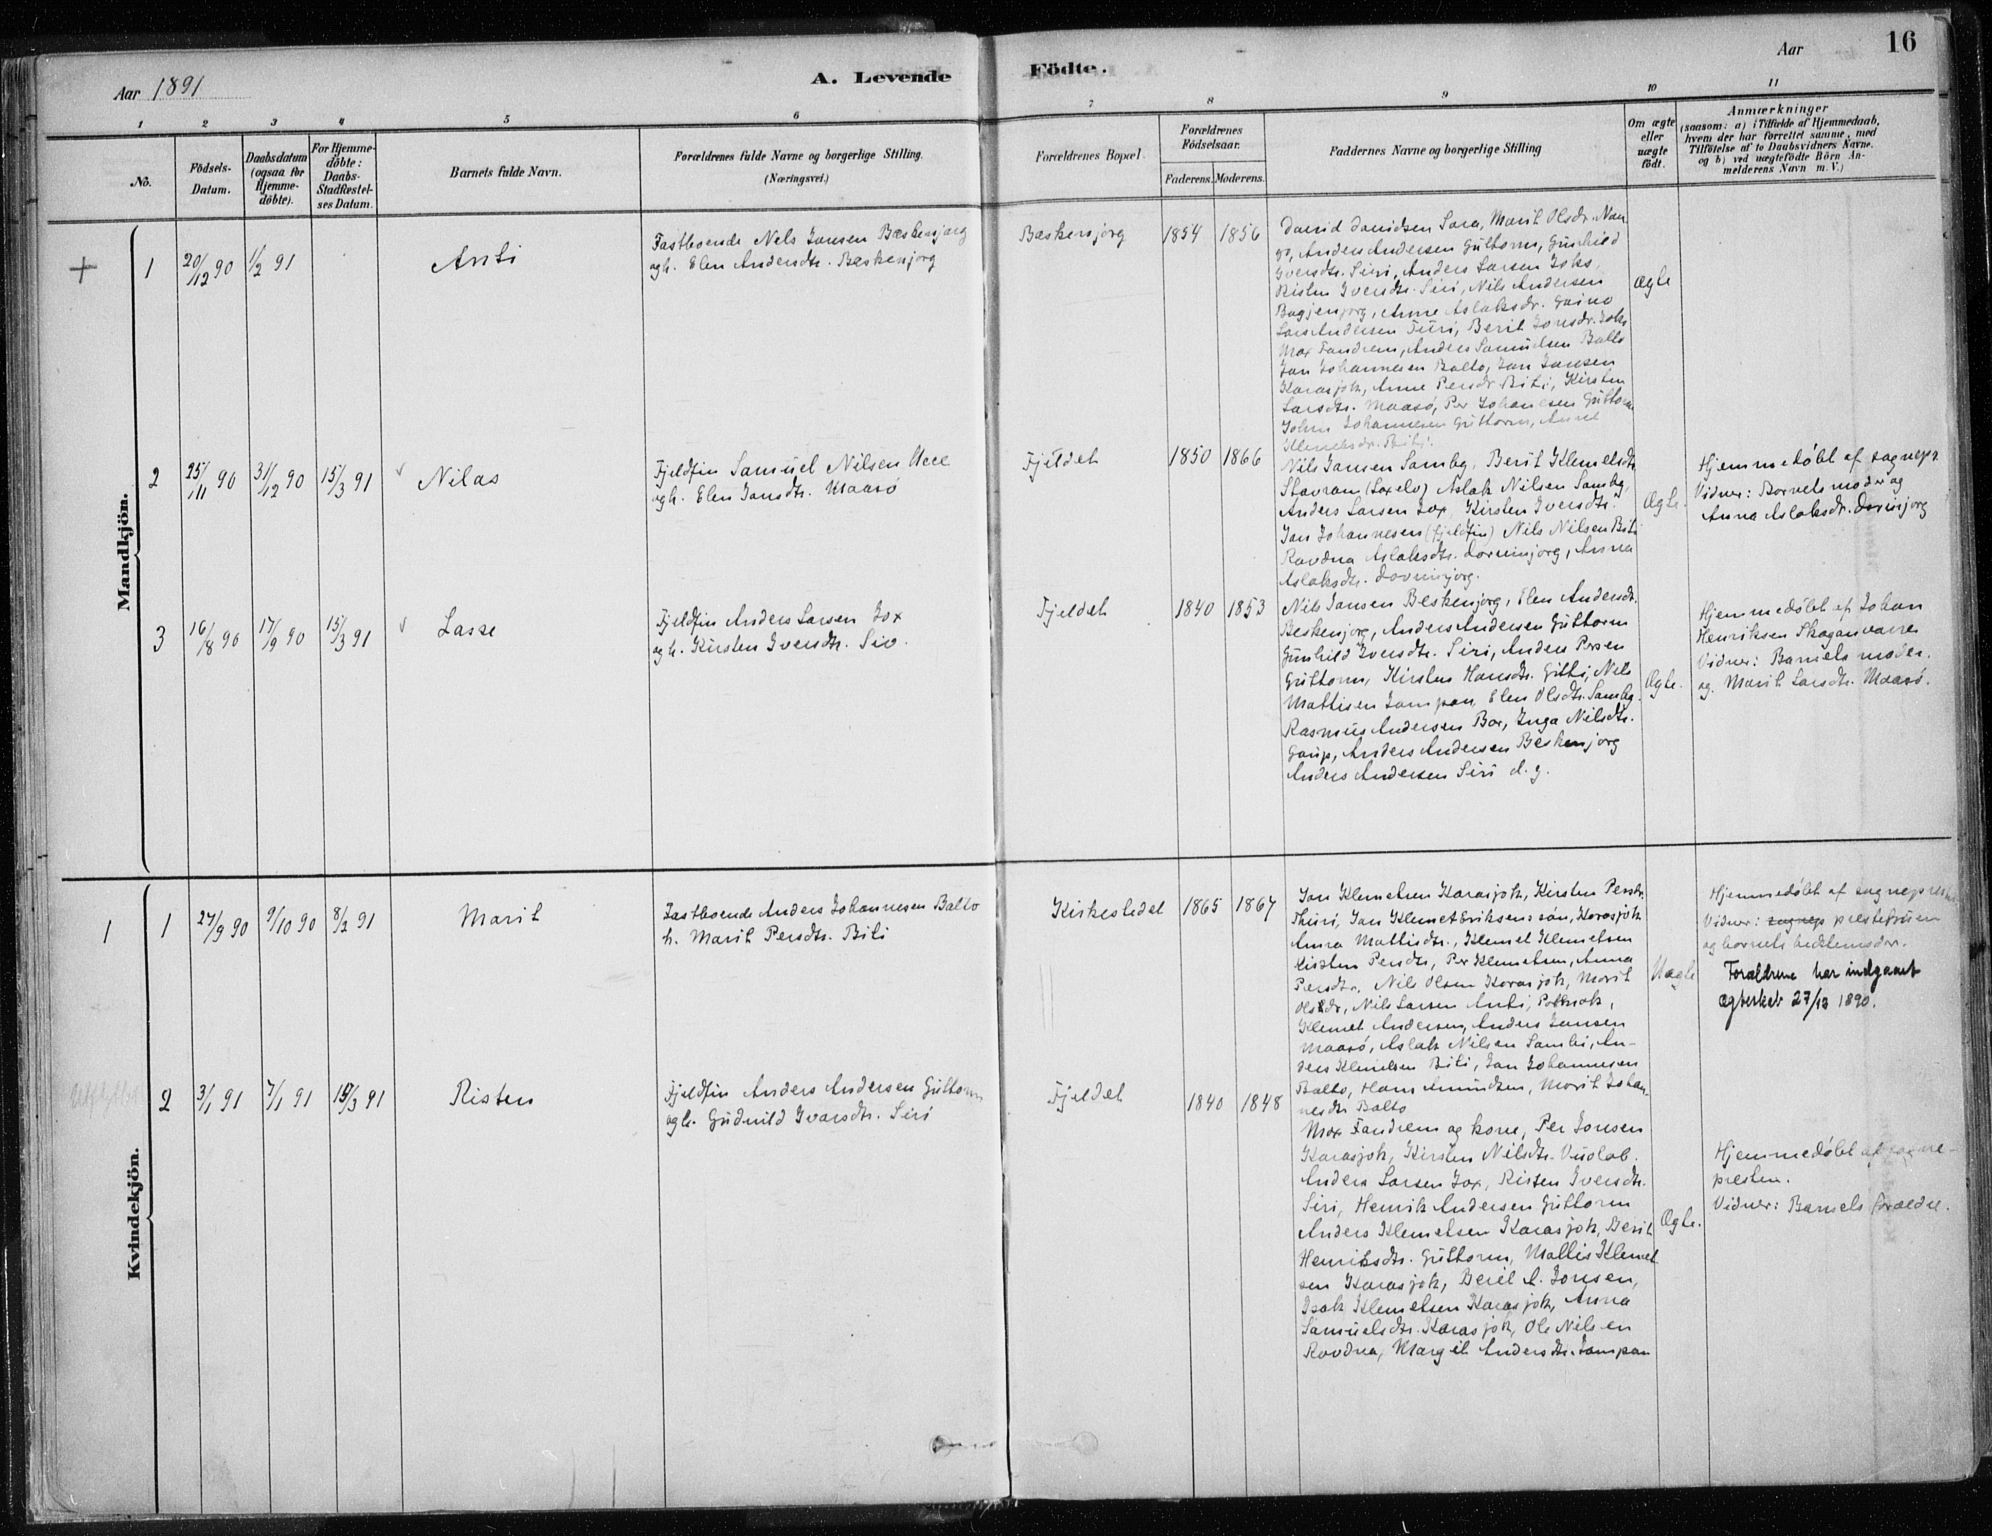 Aar 1891
A. Levende
Födte.
Aar
16
1 2 3 4 5 6 7 8 9 10 11
No.
Födsels-
Datum.
Daabsdatum
(ogsaa for
Hjemme-
döbte).
For Hjemme-
döbte:
Daabs-
Stadfæstel-
ses Datum.
Barnets fulde Navn.
Forældrenes fulde Navne og borgerlige Stilling.
(Næringsvei.)
Forældrenes Bopæl.
Forældrenes
Födselsaar.
Faderens. Moderens.
Faddernes Navne og borgerlige Stilling
Om ægte
eller
uægte
født.
Anmærkninger
(saasom: a) i Tilfælde af Hjemmedaab,
hvem der har forrettet samme, med
Tilföielse af to Daabsvidners Navne,
og b) ved uægtefödte Börn An-
melderens Navn m. V.)
Mandkjön.
+ 1 20/12 90 1/2 91 Anti
Fastboende Nels Jansen Bæskenjarg
og h. Elen Andersdtr. Beskenjorg
Bæskenjorg 1854 1856
David Davidsen Sara, Marit Olsdr. Nan
go, Anders Andersen Guttorm, Gunhild
Iversdtr. Siri, Anders Larsen Joks,
Risten Iversdtr. Siri, Nils Andersen
Bagjenjorg, Anne Aslaksdr. Gaino
Lars Andersen Turi, Berit Jonsdr. Joks
Max Tandrem, Anders Samuelsen Balto
Jan Johannesen Balto, Jan Jansen
Karasjok, Anne Persdr Biti, Kirsten
Larsdtr. Maasö, Per Johanesen Guttorm
John Johannesen Guttorm, Anne
Klemetsdr. Biti.
Ægte
2 25/11 90 31/12 90 15/3 91 Nilas
Fjeldfin Samuel Nilsen Uece
og h. Elen Jansdtr. Maasö
Fjeldet 1850 1866
Nils Jansen Sambg, Berit Klemetsdtr
Stavran (Laxelv) Aslak Nilsen Sambg,
Anders Larsen Jox, Kirsten Iversdtr.
Jan Johannesen (fjeldfin) Nils Nilsen Biti
Ravdna Aslaksdtr. Dovninjorg, Anna
Aslaksdtr. Dovninjorg.
Ægte.
Hjemmedøbt af sognepr.
Vidner: Barnets moder og
Anna Aslaksdr. Dovninjorg
3 16/8 90 17/9 90 15/3 91 Lasse
Fjeldfin Anders Larsen Jox
og h. Kirsten Iversdtr. Siv.
Fjeldet 1840 1853
Nils Jansen Beskenjorg, Elen Andersdr.
Beskenjorg, Anders Andersen Guttorm
Gunhild Iversdtr. Siri, Anders Persen
Guttorm, Kirsten Hansdtr. Gitti, Nils
Mattisen Jompan, Elen Olsdtr. Sambg.
Rasmus Andersen Bor, Inga Nilsdtr.
Gaup, Anders Andersen Beskenjorg
Anders Andersen Siri d. y.
Ægte.
Hjemmedøbt af Johan
Henriksen Skaganvarre
Vidner: Barnets moder.
og. Marit Larsdtr. Maasö.
Kvindekjön.
1 1 27/9 90 9/10 90 8/2 91 Marit
Fastboende Anders Johannesen Balto
h. Marit Persdtr. Biti
Kirkestedet 1865 1867
Jan Klemetsen Karasjok, Kirsten Persdtr.
Thuri, Jan Klemet Eriksens sön, Karasjok
Anna Mattisdtr., Klemet Klemetsen
Kirsten Persdtr, Per Klemetsen, Anna
Persdtr, Nils Olsen Karasjok, Marit
Olsdr, Nils Larsen Anti,
Klemet Andersen, Anders Jansen
Maasö, Aslak Nilsen Sambi, An-
ders Klemetsen Biti, Jan Johannesen
Balto, Hans Amundsen, Marit Johan-
nesdtr Balto
Uægte
Hjemmedøbt af sogneprest.
Vidner: sognep prestefruen
og barnets bedstemoder.
Forældrene har indgaaet
Ægteskab 27/12 1890.
2 3/1 91 7/1 91 15/3 91 Risten
Fjeldfin Anders Andersen Guttorm
og h. Gudnild Ivarsdtr. Siri
Fjeldet 1840 1848
Max Tandrem og kone, Per Jonsen
Karasjok, Kirsten Nilsdtr. Vuolab.
Anders Larsen Jox, Risten Iversdtr.
Siri, Henrik Andersen Guttorm
Anders Klemetsen Karasjok, Berit
Henriksdtr. Guttorm, Mattis Klemet
sen Karasjok, Berit A. Jonsen,
Isak Klemetsen Karasjok, Anna
Samuelsdtr. Karasjok, Ole Nilsen
Ravdna, Margit Andersdtr. Jompan
Ægte.
Hjemmedøbt af sogne-
presten.
Vidner: Barnets forældre.